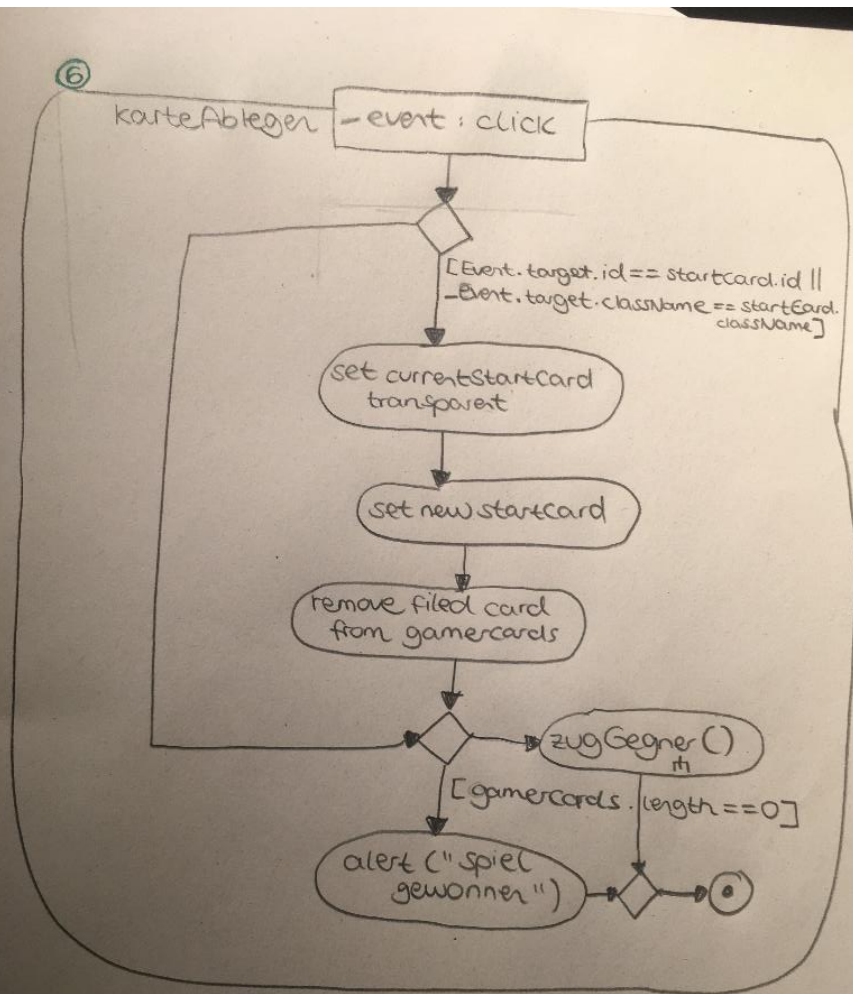 6
karteAblegen
_event : click
[Event.target.id == startcard.id ||
_Event.target.className == startCard.
className]
set currentStartCard
transparent
set new startcard
remove filed card
from gamercards
zugGegner()
[gamercards.length == 0]
alert ("Spiel
gewonnen")